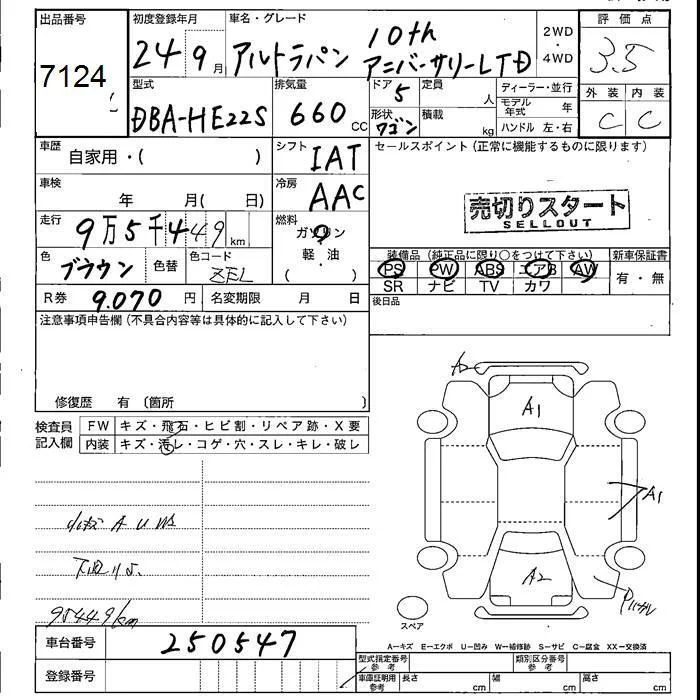 出品番号 初度登録年月 車名・グレード 評価点
7124 24 9月 アルトラパン 10th アニバーサリーLTD 2WD・4WD 3.5
型式 排気量 ドア 定員 ディーラー・並行 外装 内装
DBA-HE22S 660 CC 5 人 モデル年式 年 C C
形状 積載
ワゴン kg ハンドル 左・右
車歴 自家用・( ) シフト IAT セールスポイント(正常に機能するものに限ります)
車検 年 月( 日) 冷房 AAC
売切りスタート
SELLOUT
走行 9万5千449km 燃料 ガソリン・軽・油 ( )
装備品(純正品に限り○をつけて下さい) 新車保証書
色 ブラウン 色替 色コード ZFL
PS PW ABS エアB AW 有・無
SR ナビ TV カワ
R券 9.070円 名変期限 月 日 後日品
注意事項申告欄(不具合内容等は具体的に記入して下さい)
修復歴 有 〔箇所 〕
検査員記入欄 FW キズ・飛石・ヒビ割・リペア跡・X要
内装 キズ・汚レ・コゲ・穴・スレ・キレ・破レ
A2
A1
A1
A U W
95449km
A2
スペア
車台番号 250547
A−キズ E−エクボ U−凹み W−補修跡 S−サビ C−腐食 XX−交換済
登録番号
型式指定番号 参考 類別区分番号 参考
車庫証明用 参考 長さ cm 幅 cm 高さ cm